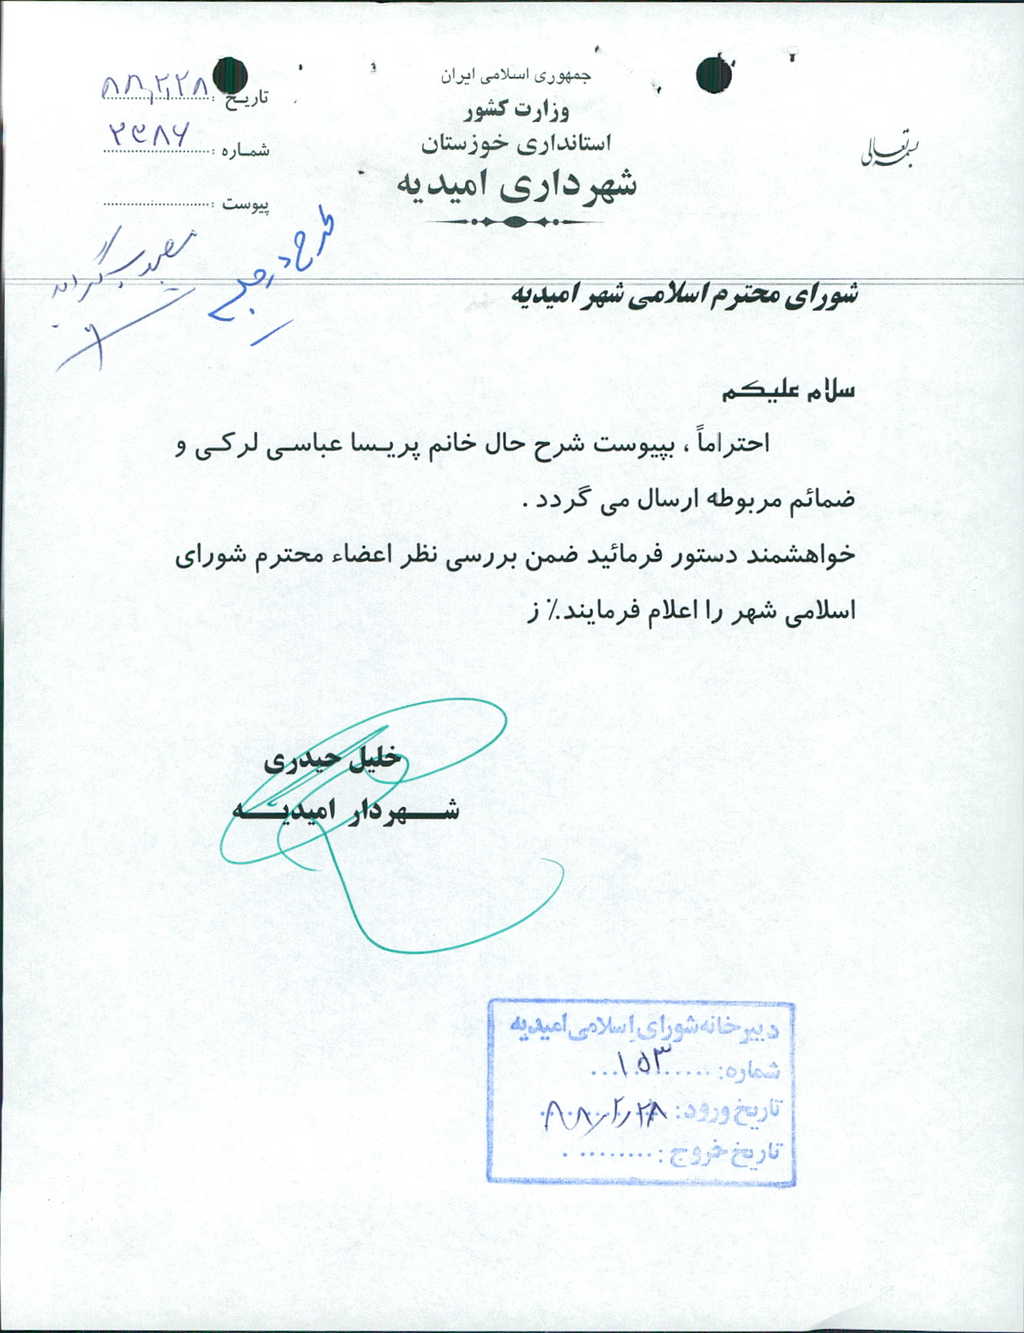 بسمه تعالی
جمهوری اسلامی ایران
وزارت کشور
استانداری خوزستان
شهرداری امیدیه
تاریخ : ۸۸,۲,۲۸
شماره : ۲۳۸۶
پیوست :
طرح در جلسه
مصوب گردید
شورای محترم اسلامی شهر امیدیه
سلام علیکم
احتراماً ، بپیوست شرح حال خانم پریسا عباسی لرکی و
ضمائم مربوطه ارسال می گردد .
خواهشمند دستور فرمائید ضمن بررسی نظر اعضاء محترم شورای
اسلامی شهر را اعلام فرمایند.٪ ز
خلیل حیدری
شهردار امیدیه
دبیرخانه شورای اسلامی امیدیه
شماره: ۱۵۳
تاریخ ورود: ۸۸/۲/۲۸
تاریخ خروج :